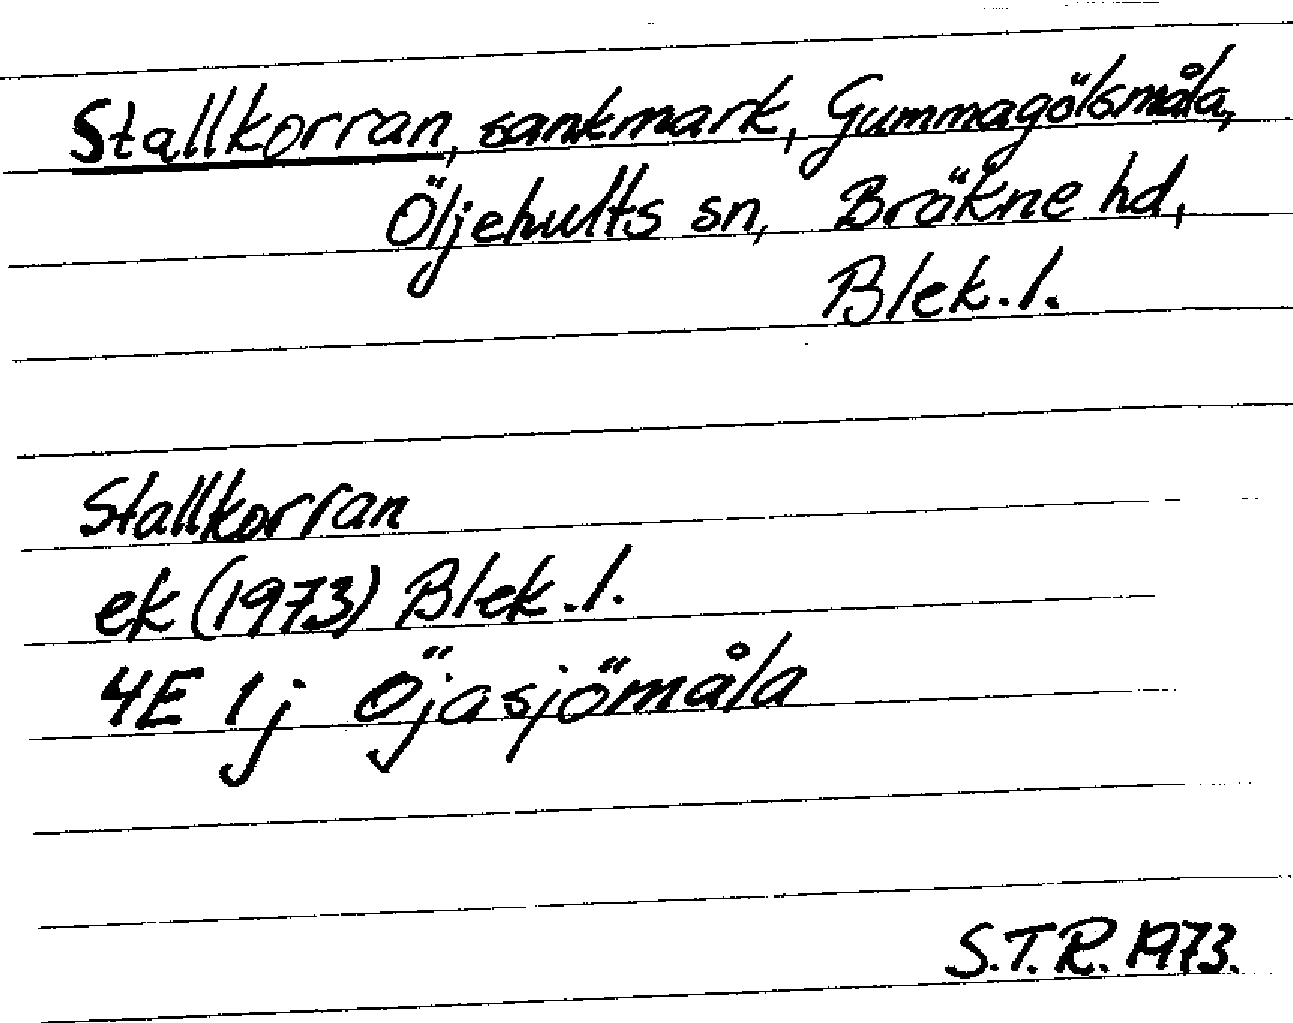 Stallkorran, sankmark, Gummagölsmåla,
Öljehults sn, Bräkne hd,
Blek. l.
Stallkorran
ek (1973) Blek. l.
4E 1j Öjasjömåla
S.T.R. 1973.